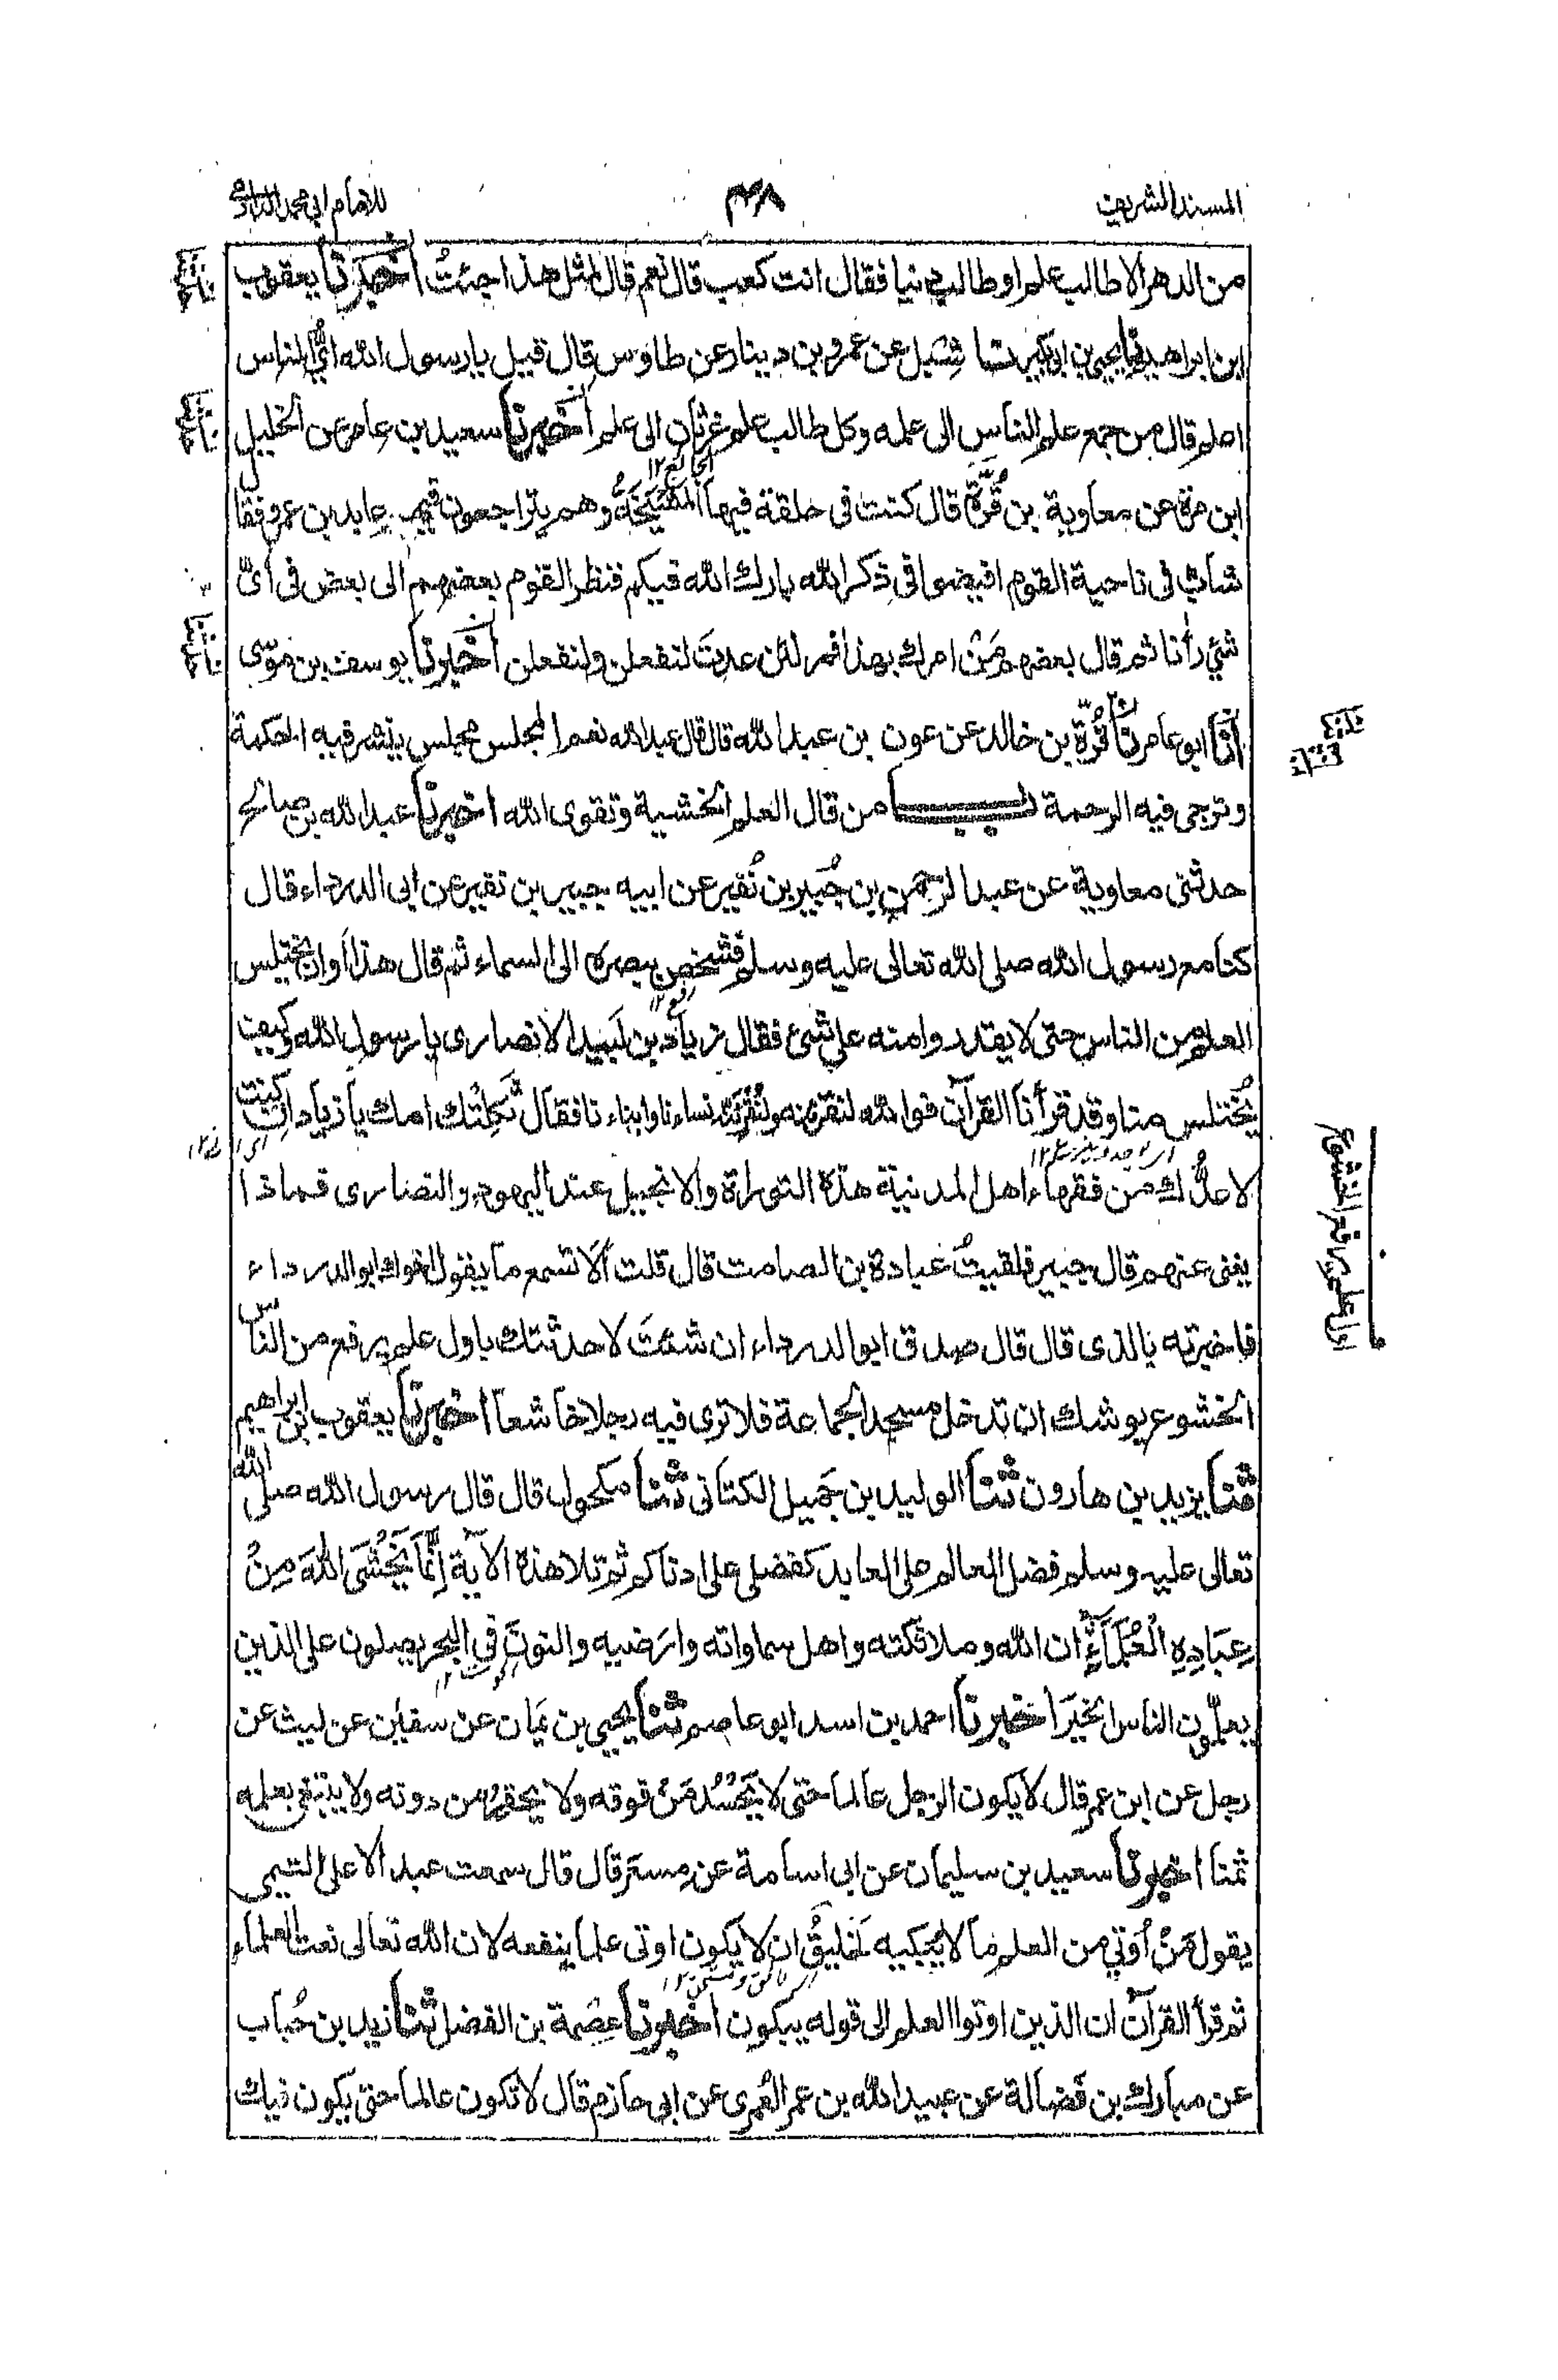 المسند الشريف
۴۸
للامام ابي محمد الدارمي
من الدهر الا طالب علم او طالب دنيا فقال انت كعب قال نعم قال لمثل هذا جئتُ اخبرنا يعقوب
ابن ابراهيم ثنا يحيى بن ابي بكير ثنا شبل عن عمرو بن دينار عن طاوس قال قيل يا رسول الله ايُّ الناس
اعلم قال من جمع علم الناس الى علمه وكل طالب علم غرثان الى علم اخبرنا سعيد بن عامر عن الخليل
ابن مرة عن معاوية بن قُرَّة قال كنت في حلقة فيها المَشْيَخَةُ وهم يتراجعون فيهم عابد بن عمرو فقال
شاب في ناحية القوم افيضوا في ذكر الله بارك الله فيكم فنظر القوم بعضهم الى بعض في أىّ
شئ رأنا ثم قال بعضهم مَنْ امرك بهذا فمر لئن عدتَ لنفعلن ولنفعلن اخبرنا يوسف بن موسى
أنَا ابو عامر ثنا قُرّة بن خالد عن عون بن عبد الله قال قال عبد الله نعم المجلس مجلس ينشر فيه الحكمة
وترجى فيه الرحمة باب من قال العلم الخشية وتقوى الله اخبرنا عبد الله بن صالح
حدثني معاوية عن عبد الرحمن بن جُبير بن نُفير عن ابيه جبير بن نفير عن ابي الدرداء قال
كنا مع رسول الله صلى الله تعالى عليه وسلم فشخص ببصره الى السماء ثم قال هذا أوان يختلس
العلم من الناس حتى لا يقدروا منه على شئ فقال زياد بن لَبيد الانصارى يا رسول الله وكيف
يُختلس منا وقد قرأنا القرآن فوالله لنقرئنه ولنُقرِئنّه نساءنا وابناءنا فقال ثَكِلَتْك امك يا زياد ان كنت
لاعدُّك من فقهاء اهل المدينة هذه التوراة والانجيل عند اليهود والنصارى فماذا
يغنى عنهم قال جبير فلقيتُ عبادة بن الصامت قال قلت ألا تسمع ما يقول اخوك ابو الدرداء
فاخبرته بالذى قال قال صدق ابو الدرداء ان شئتَ لاحدثتك باول علم يرفع من الناس
الخشوع يوشك ان تدخل مسجد الجماعة فلا ترى فيه رجلا خاشعا اخبرنا يعقوب بن ابراهيم
ثنا يزيد بن هارون ثنا الوليد بن جَميل الكتانى ثنا مكحول قال قال رسول الله صلى الله
تعالى عليه وسلم فضل العالم على العابد كفضلى على ادناكم ثم تلا هذه الآية إِنَّمَا يَخْشَى اللهَ مِنْ
عِبَادِهِ الْعُلَمَاءُ ان الله وملائكته واهل سماواته وارَضيه والنونَ في البحر يصلون على الذين
يعلّمون الناس الخيرَ اخبرنا احمد بن اسد ابو عاصم ثنا يحيى بن يَمان عن سفيٰن عن ليث عن
رجل عن ابن عمر قال لا يكون الرجل عالما حتى لا يَحْسُدَ مَنْ فوقه ولا يحقِرُ من دونه ولا يبتغى بعلمه
ثمنا اخبرنا سعيد بن سليمان عن ابى اسامة عن مِسعَر قال قال سمعت عبد الاعلى التيمى
يقول مَنْ أُوتي من العلم ما لا يُبكيه لَخليقٌ ان لا يكون اوتى علما ينفعه لان الله تعالى نعت العلماء
ثم قرأ القرآن ان الذين اوتوا العلم الى قوله يبكون اخبرنا عِصْمة بن الفضل ثنا زيد بن حُباب
عن مبارك بن فَضالة عن عبيد الله بن عمر العُمرى عن ابى حازم قال لا تكون عالما حتى يكون فيك
اول علم يرفع الخشوع